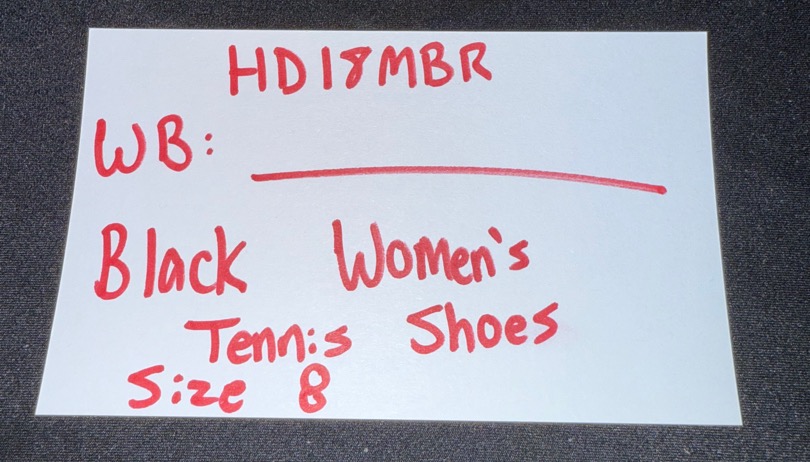 HD18MBR
WB:
Black Women's
Tennis Shoes
Size 8